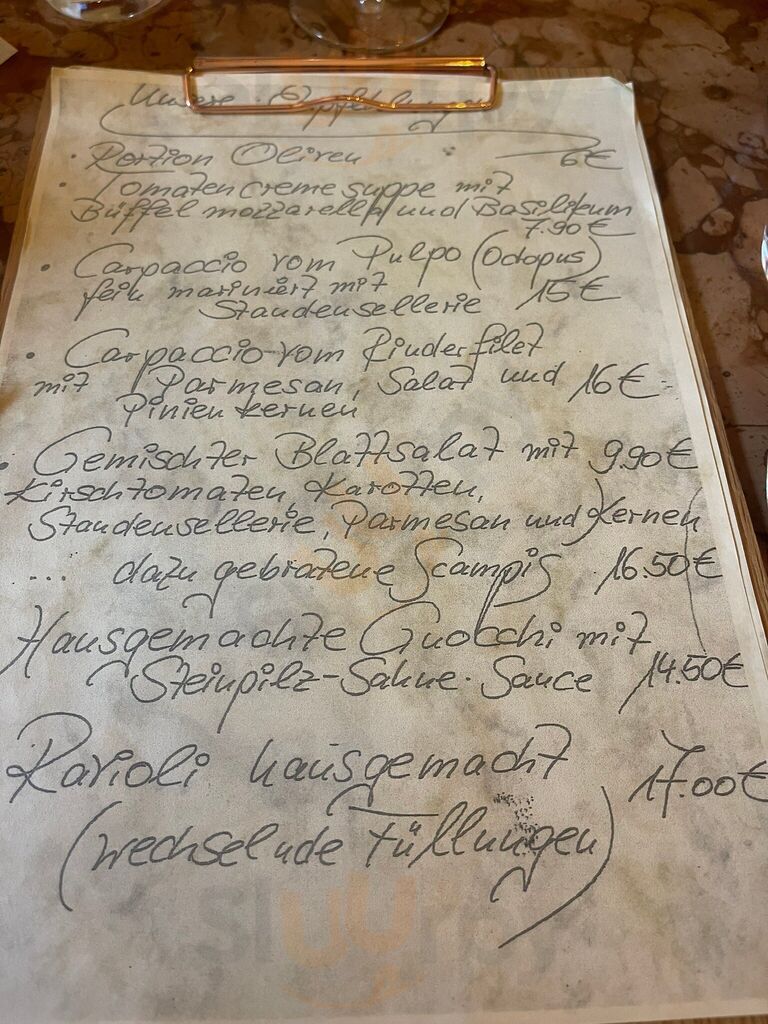 Unsere Empfehlungen
• Portion Oliven 6€
• Tomatencremesuppe mit
Büffelmozzarella und Basilikum
7.90€
• Carpaccio vom Pulpo (Octopus)
fein mariniert mit 15€
Staudensellerie
• Carpaccio vom Rinderfilet
mit Parmesan, Salat und 16€
Pinienkernen
• Gemischter Blattsalat mit 9.90€
Kirschtomaten, Karotten,
Staudensellerie, Parmesan und Kernen
... dazu gebratene Scampis 16.50€
Hausgemachte Gnocchi mit
Steinpilz-Sahne-Sauce 14.50€
Ravioli hausgemacht 17.00€
(wechselnde Füllungen)
sluurpy